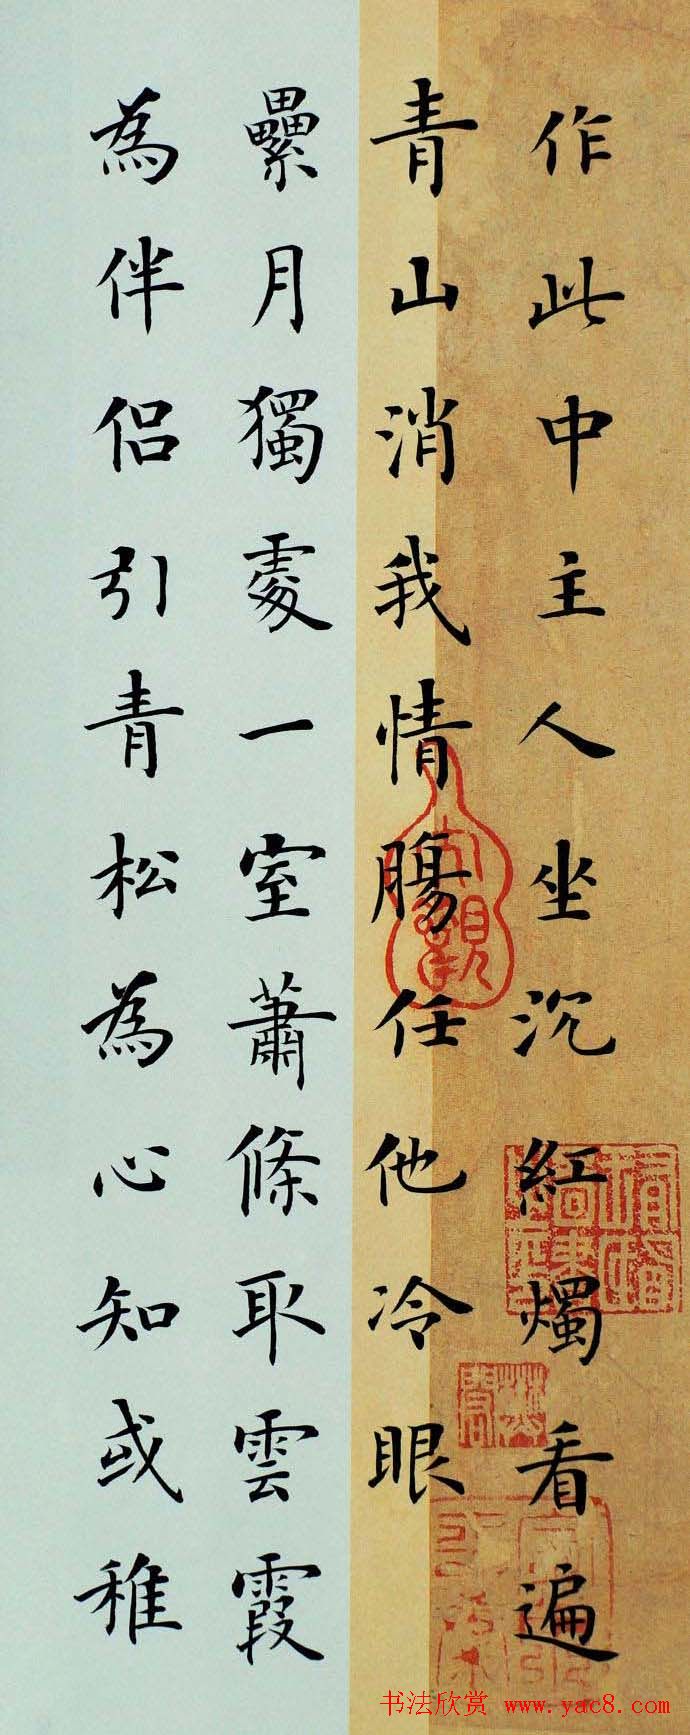 作此中主人坐沉紅燭看遍
青山消我情腸任他冷眼
纍月獨處一室蕭條取雲霞
為伴侣引青松為心知或稚
书法欣赏 www.yac8.com